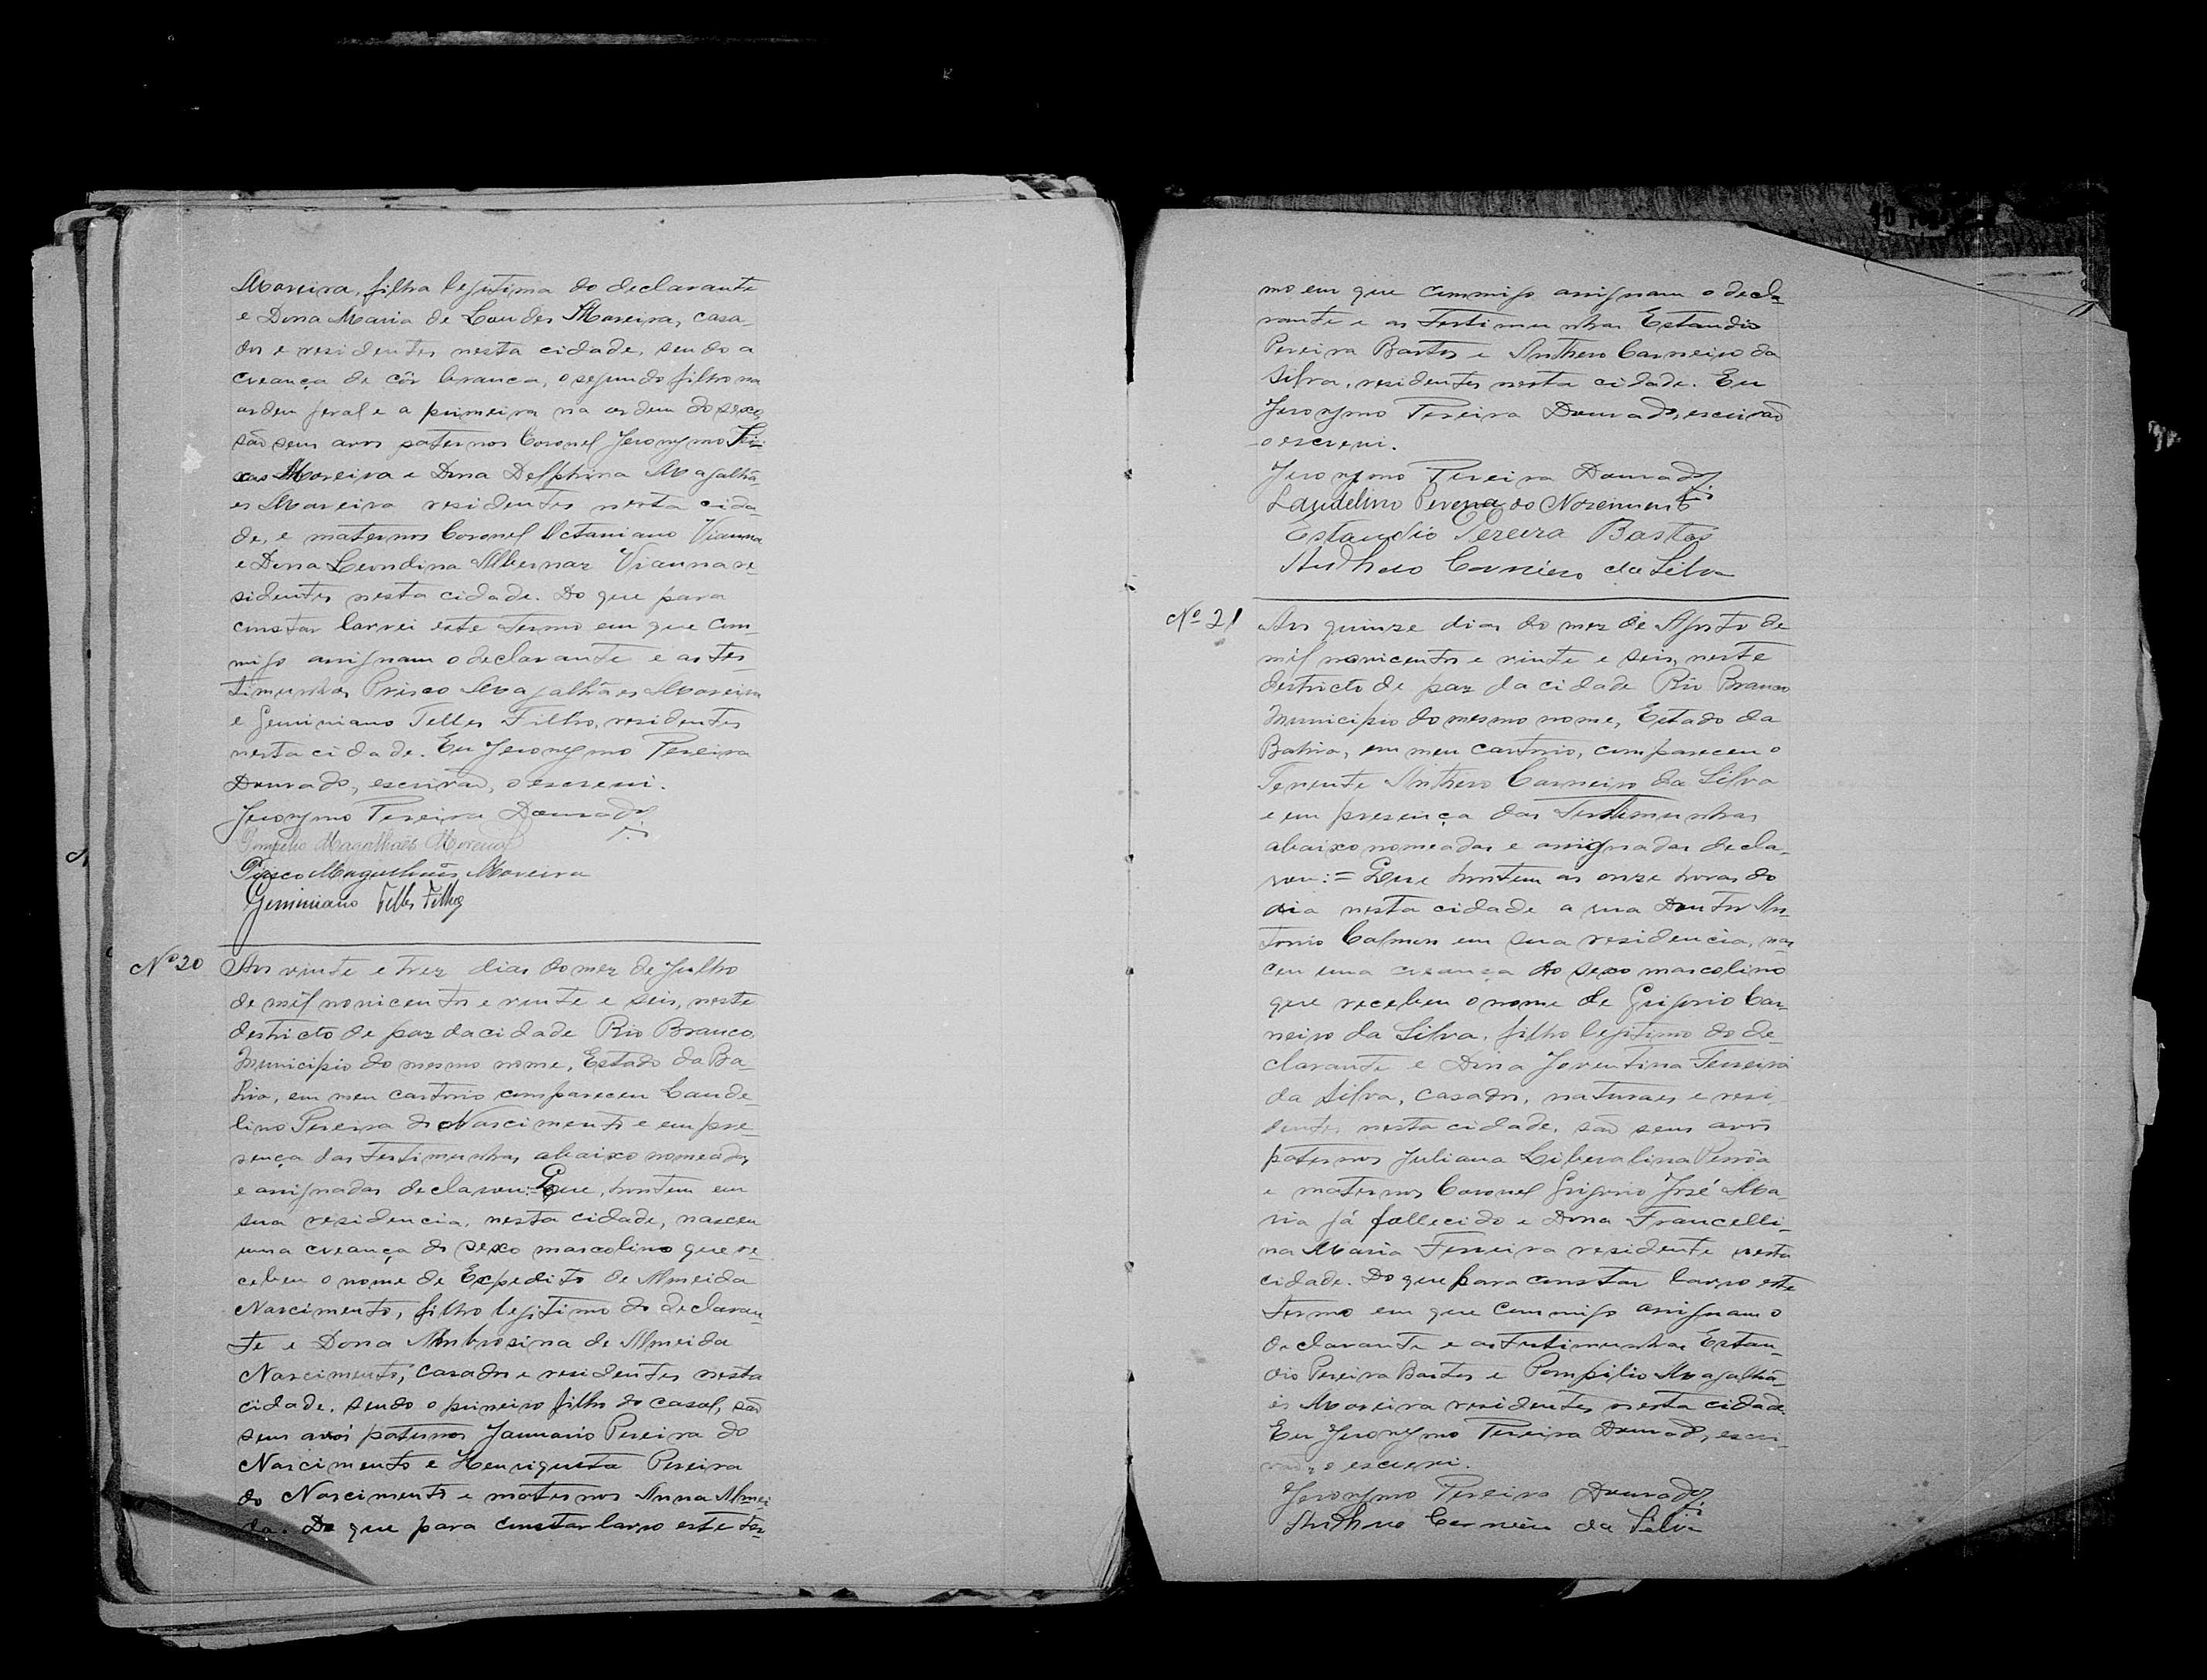 Moreira, filha legitima do declarante
e Dona Maria de Lourdes Moreira, casa-
dos e residentes nesta cidade, sendo a
creança de côr branca, o segundo filho na
orden geral e a primeira na ordem do sexo,
são seus avos paternos Coronel Jeronymo Tei-
xas Moreira e Dona Delphina Magalhã-
es Moreira residentes nesta cida-
de, e maternos Coronel Octaviano Vianna
e Dona Leondina Albernaz Vianna re-
sidentes nesta cidade. Do que para
constar lavrei este termo em que com-
migo assignam o declarante e as tes-
timunhas Prisco Magalhães Moreira
e Geminiano Telles Filho, residentes
nesta cidade. Eu Jeronymo Pereira
Dourado, escrivão, o escrevi.
Jeronymo Pereira Dourado
Pompilio Magalhães Moreira
Prisco Magalhães Moreira
Geminiano Telles Filho
Nº 20 Aos vinte e trez dias do mez de Julho
de mil novicentos e vinte e seis, neste
destricto de paz da cidade Rio Branco,
Municipio do mesmo nome, Estado da Ba-
hia, em meu cartorio compareceu Laude-
lino Pereira do Nascimento e em pre-
sença das testimunhas abaixo nomeadas
e assignadas declarou:= Que, hontem em
sua residencia, nesta cidade, nasceu
uma creança do sexo mascolino que re-
cebeu o nome de Expedito de Almeida
Nascimento, filho legitimo do declaran-
te e Dona Ambrosina de Almeida
Nascimento, casados e residentes nesta
cidade, sendo o primeiro filho do casal, são
seus avós paternos Januario Pereira do
Nascimento e Henriqueta Pereira
do Nascimento e maternos Anna Almei-
da. Do que para constar lavro este ter-
mo em que commigo assignam o decla-
rante e as testimunhas Estandio
Pereira Bastos e Anthero Carneiro da
Silva, residentes nesta cidade. Eu
Jeronymo Pereira Dourado, escrivão
o escrevi.
Jeronymo Pereira Dourado
Laudelino Pereira do Nascimento
Estandio Pereira Bastos
Anthero Carneiro da Silva
Nº 21 Aos quinze dias do mez de Agosto de
mil novicentos e vinte e seis, neste
destricto de paz da cidade Rio Branco
Municipio do mesmo nome, Estado da
Bahia, em meu cartorio, compareceu o
Tenente Anthero Carneiro da Silva
e em presença das testimunhas
abaixo nomeadas e assignadas decla-
rou:= Que hontem as onze horas do
dia nesta cidade a rua Doutor An-
tonio Calmon em sua residencia, nas-
ceu uma creança do sexo mascolino
que recebeu o nome de Grigorio Car-
neiro da Silva, filho legitimo do de-
clarante e Dona Joventina Ferreira
da Silva, casados, naturaes e resi-
dentes nesta cidade, são seus avós
paternos Juliana Liberalina
e maternos Coronel Grigorio José Ma-
ria já fallecido e Dona Francelli-
na Maria Ferreira residente nesta
cidade. Do que para constar lavro este
termo em que commigo assignam o
declarante e as testimunhas Estan-
dio Pereira Bastos e Pompilio Magalhã-
es Moreira residentes nesta cidade.
Eu Jeronymo Pereira Dourado, escri-
vão, o escrevi.
Jeronymo Pereira Dourado
Anthero Carneiro da Silva